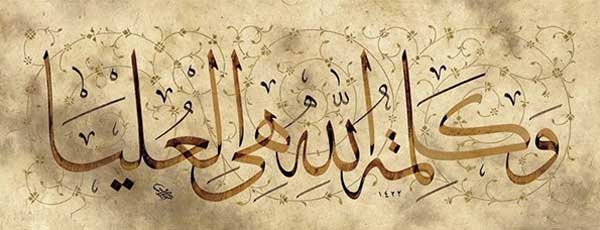 وَكَلِمَةُ اللّٰهِ هِىَ الْعُلْيَا
١٤٢٢